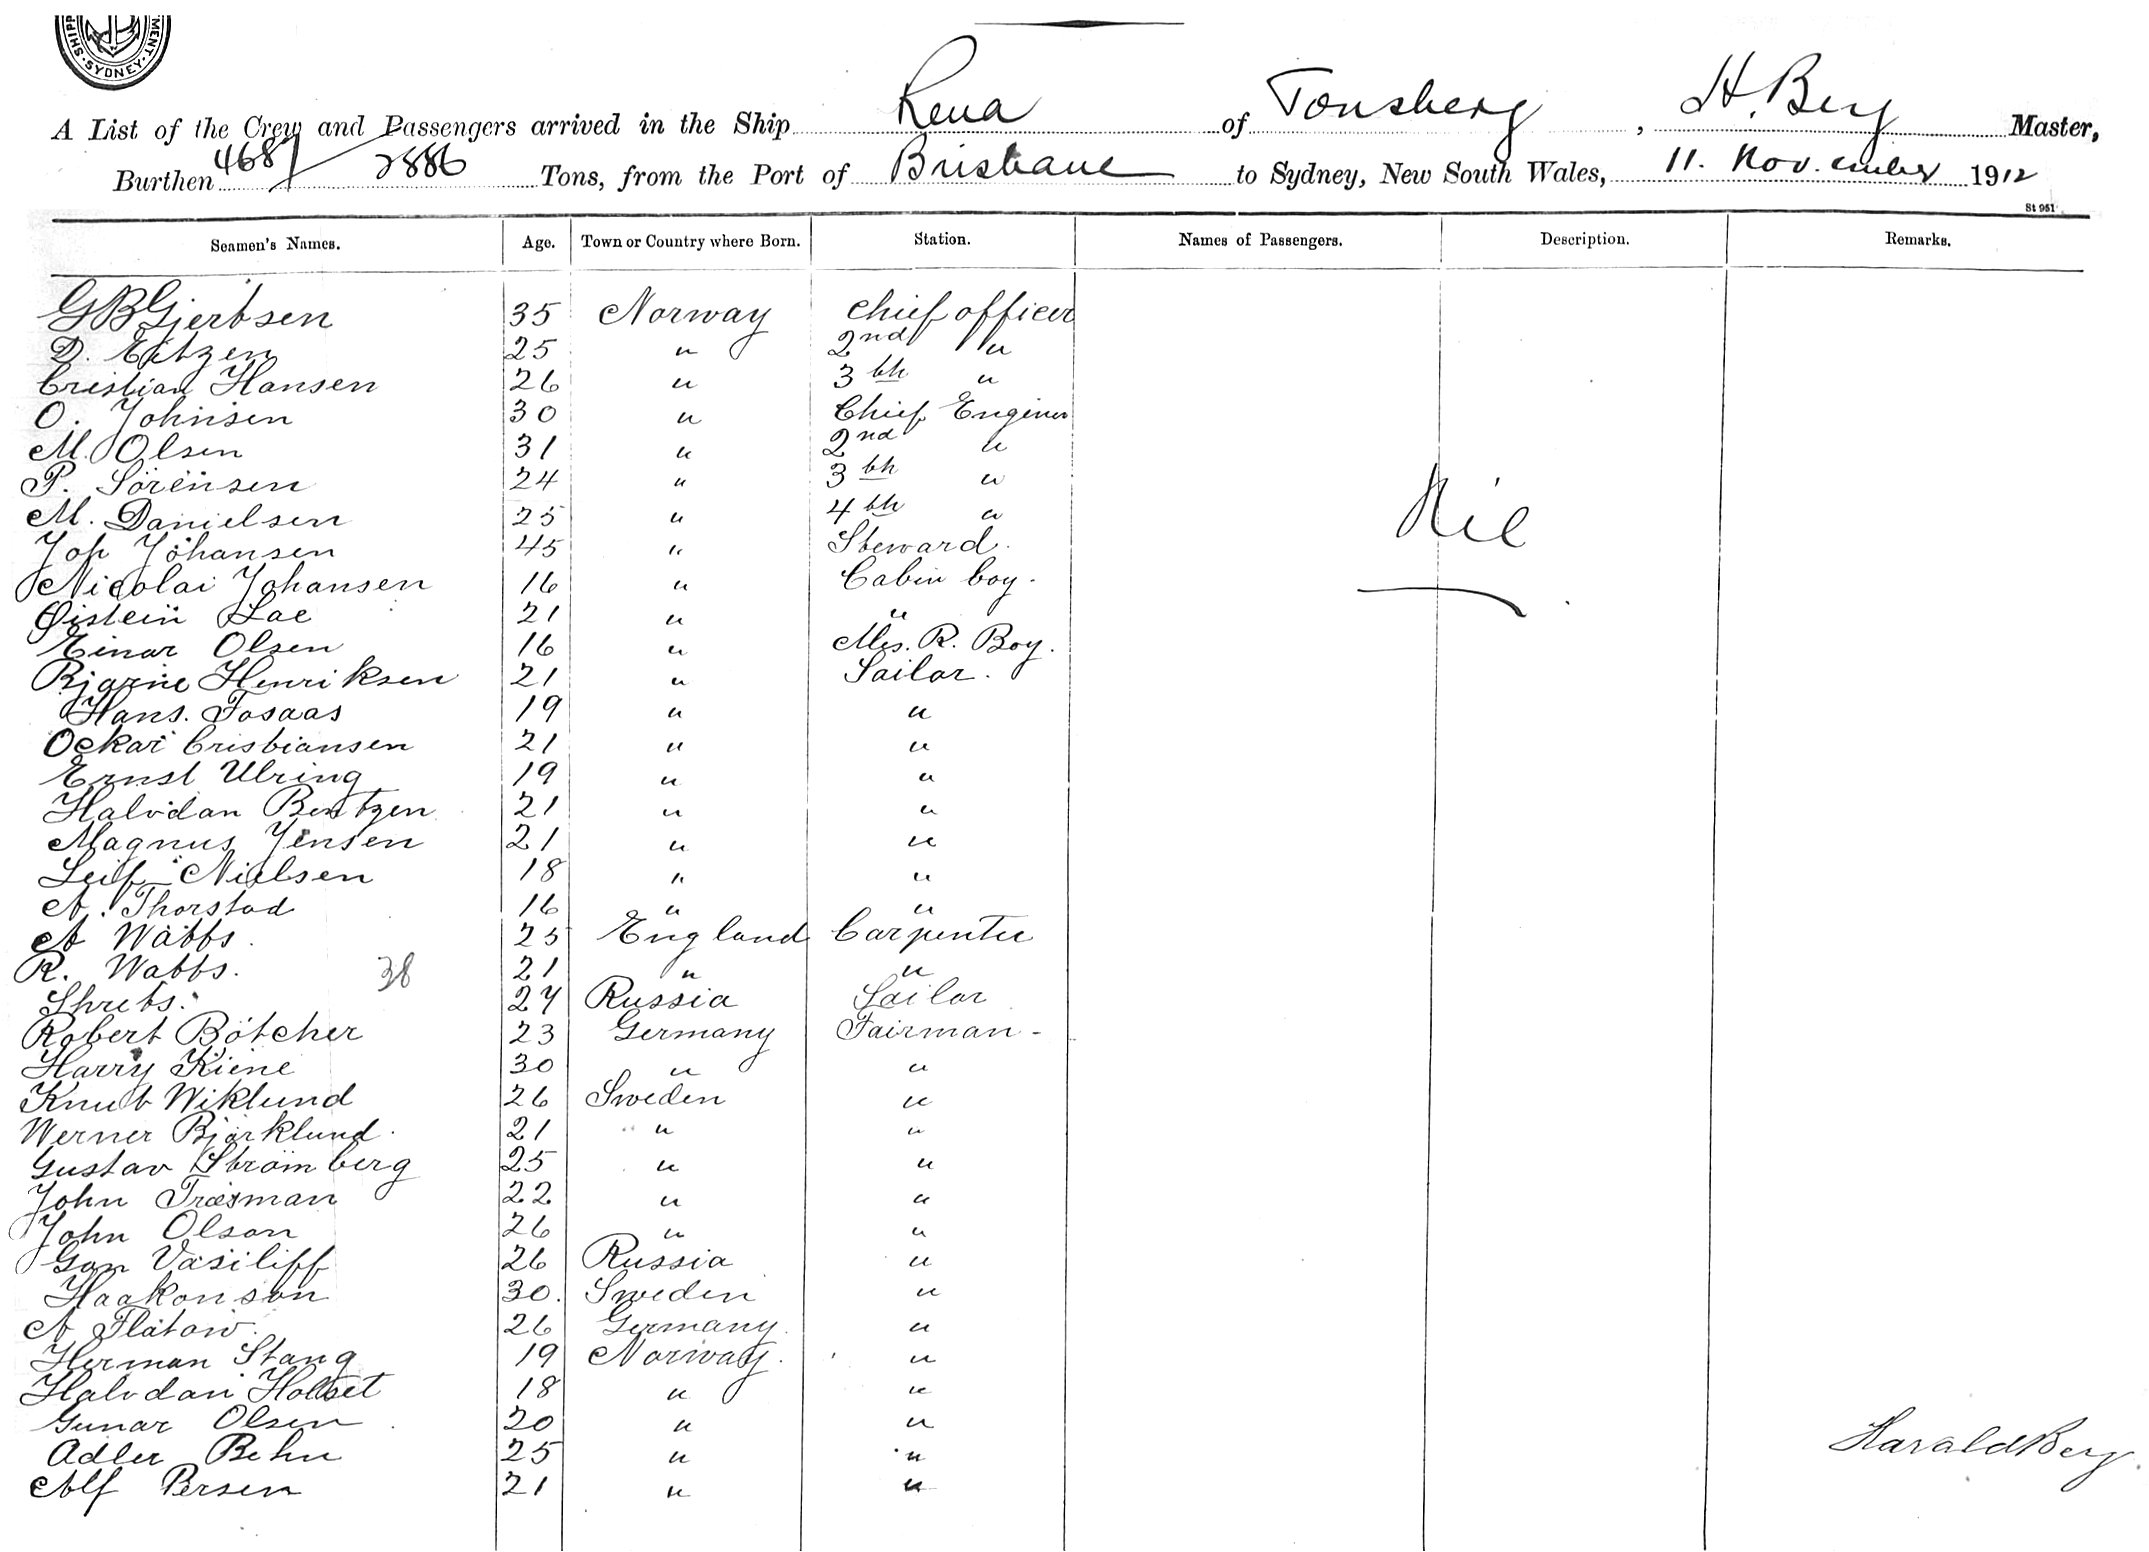 MENT. SYDNEY. SHIPP
A List of the Crew and Passengers arrived in the Ship Rena of Tonsberg, H. Berg Master,
Burthen 4687 / 2886 Tons, from the Port of Brisbane to Sydney, New South Wales, 11. November 1912
St 951
Seamen's Names. Age. Town or Country where Born. Station. Names of Passengers. Description. Remarks.
G B Gjertsen 35 Norway Chief officer
D. Eitzen 25 " 2nd "
Cristian Hansen 26 " 3th "
O. Johnsen 30 " Chief Enginer
M. Olsen 31 " 2nd "
P. Sörensen 24 " 3th "
M. Danielsen 25 " 4th "
Joh Johansen 45 " Steward.
Nil
Nicolai Johansen 16 " Cabin boy.
Øistein Lae 21 " "
Einar Olsen 16 " Mes. R. Boy.
Bjarne Henriksen 21 " Sailor.
Hans. Fosaas 19 " "
Ockar Cristiansen 21 " "
Ernst Ulring 19 " "
Halvdan Bentzen 21 " "
Magnus Jensen 21 " "
Leif Nielsen 18 " "
A. Thorstad 16 " "
A Wabbs. 25 England Carpenter
R. Wabbs. 38 21 " "
Shrets. 27 Russia Sailor
Robert Bötcher 23 Germany Fairman -
Harry Kiene 30 " "
Knut Wiklund 26 Sweden "
Werner Bjørklund. 21 " "
Gustav Strömberg 25 " "
John Træsman 22 " "
John Olson 26 " "
Gon Vasiliff 26 Russia "
Haakonson 30. Sweden "
A Flatow. 26 Germany. "
Herman Stang 19 Norway. "
Halvdan Holset 18 " "
Gunar Olsen 20 " "
Adler Behn 25 " "
Harald Berg.
Alf Persen 21 " "